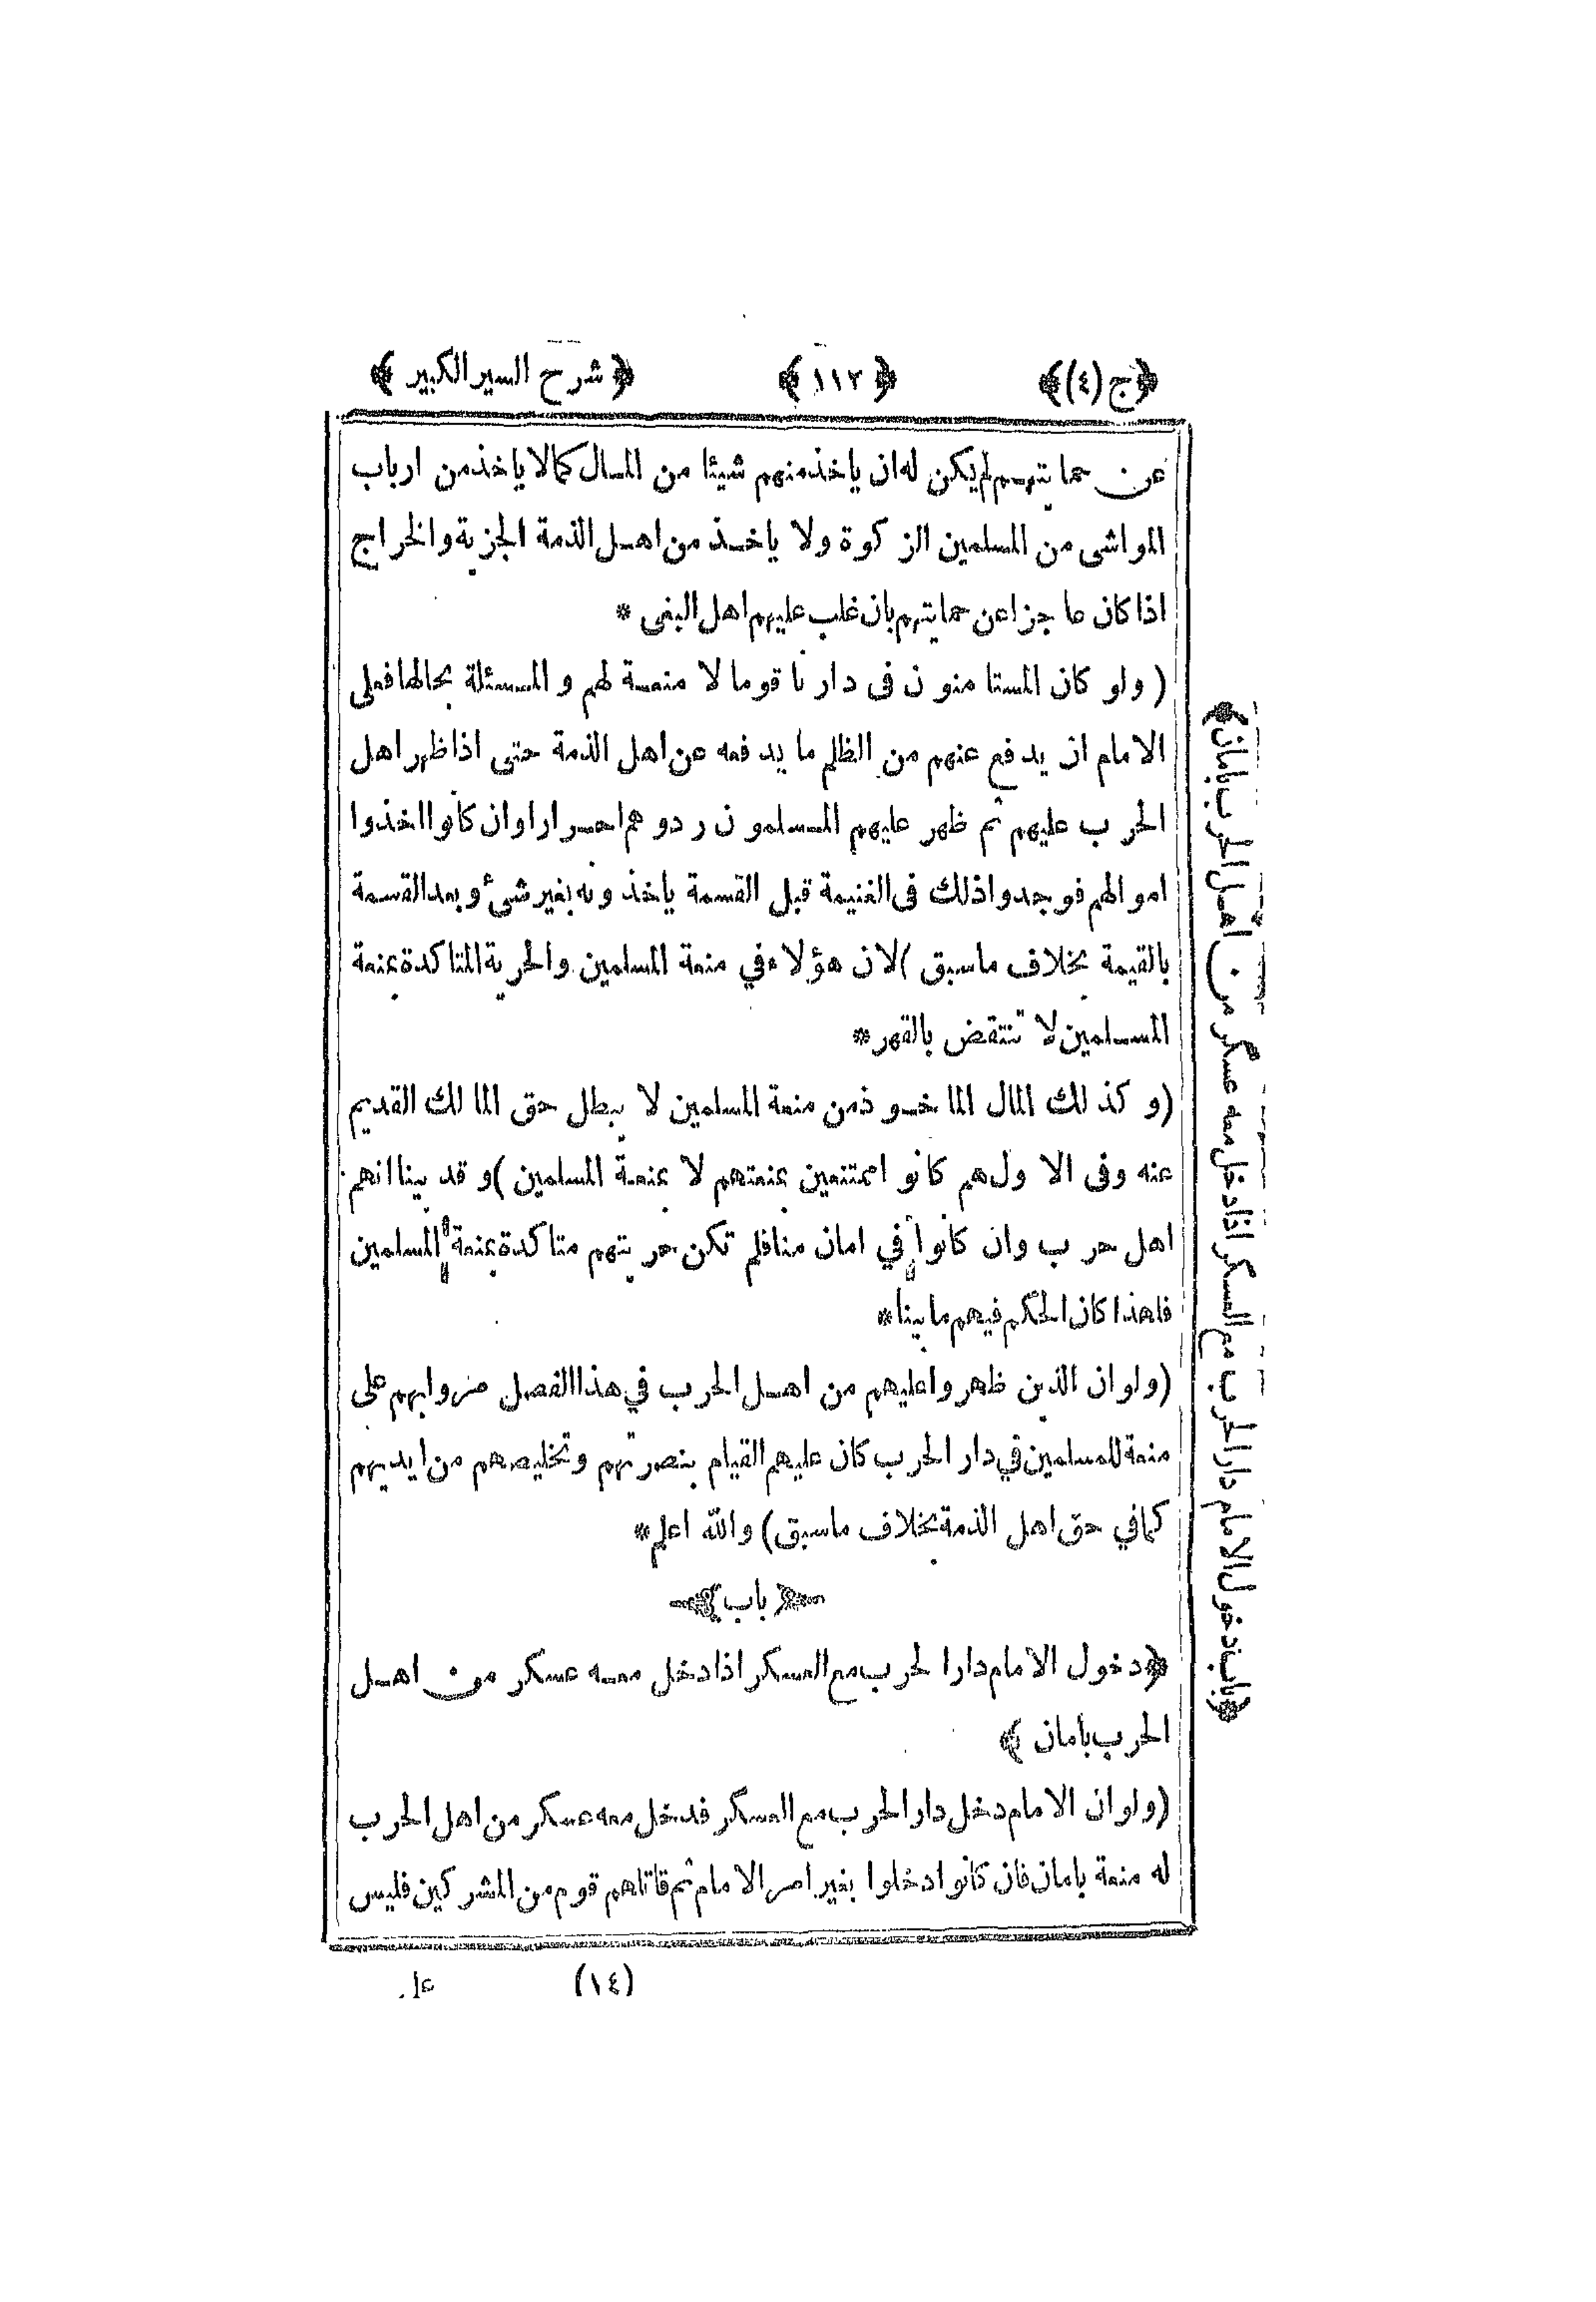 ﴿ج(٤)﴾ ﴿١١٢﴾ ﴿شرح السير الكبير﴾
عن حمايتهم لم يكن له ان ياخذ منهم شيئا من المال كما لا ياخذ من ارباب
المواشى من المسلمين الزكوة ولا ياخذ من اهل الذمة الجزية والخراج
اذا كان عاجزا عن حمايتهم بان غلب عليهم اهل البغى *
(ولو كان المستامنون فى دارنا قوما لا منعة لهم والمسئلة بحالها فعلى
الامام ان يدفع عنهم من الظلم ما يدفعه عن اهل الذمة حتى اذا ظهر اهل
الحرب عليهم ثم ظهر عليهم المسلمون ردوهم احرارا وان كانوا اخذوا
اموالهم فوجدوا ذلك فى الغنيمة قبل القسمة ياخذونه بغير شئ وبعد القسمة
بالقيمة بخلاف ماسبق) لان هؤلاء في منعة المسلمين والحرية المتاكدة بمنعة
المسلمين لا تنتقض بالقهر *
(وكذلك المال الماخوذ من منعة المسلمين لا يبطل حق المالك القديم
عنه وفى الاول هم كانوا ممتنعين بمنعتهم لا بمنعة المسلمين) وقد بينا انهم
اهل حرب وان كانوا في امان منا فلم تكن حريتهم متاكدة بمنعة المسلمين
فلهذا كان الحكم فيهم ما بينا *
(ولو ان الذين ظهروا عليهم من اهل الحرب في هذا الفصل مروا بهم على
منعة للمسلمين في دار الحرب كان عليهم القيام بنصرتهم وتخليصهم من ايديهم
كما في حق اهل الذمة بخلاف ماسبق) والله اعلم *
باب
﴿دخول الامام دار الحرب مع العسكر اذا دخل معه عسكر من اهل
الحرب بامان﴾
(ولو ان الامام دخل دار الحرب مع العسكر فدخل معه عسكر من اهل الحرب
له منعة بامان فان كانوا دخلوا بغير امر الامام ثم قاتلهم قوم من المشركين فليس
(١٤)
﴿باب دخول الامام دار الحرب مع العسكر اذا دخل معه عسكر من اهل الحرب بامان﴾